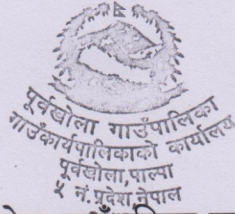 पूर्वखोला गाउँपालिका
गाउँकार्यपालिकाको कार्यालय
पूर्वखोला, पाल्पा
५ नं. प्रदेश नेपाल